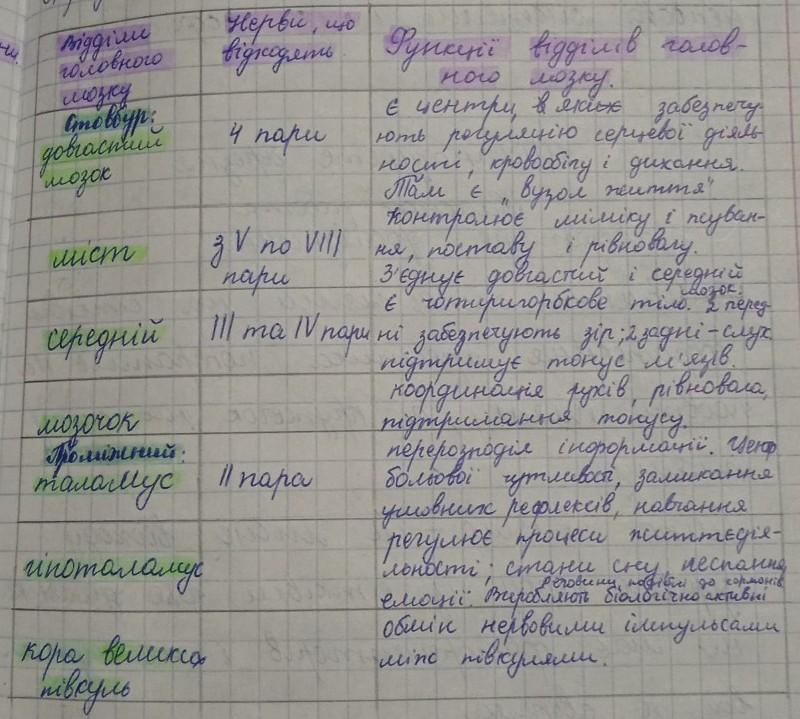 Відділи
головного
мозку
Нерви, що
відходять
Функції відділів голов-
ного мозку.
Стовбур:
довгастий
мозок
4 пари
є центри, в яких забезпечу-
ють регуляцію серцевої діяль-
ності, кровообігу і дихання.
Там є „вузол життя"
міст
з V по VIII
пари
контролює міміку і жуван-
ня, поставу і рівновагу.
З'єднує довгастий і середній
мозок.
середній
III та IV пари
є чотиригорбкове тіло. 2 перед-
ні забезпечують зір; 2 задні - слух.
підтримує тонус м'язів.
мозочок
координація рухів, рівновага,
підтримання тонусу.
Проміжний:
таламус
II пара
перерозподіл інформації. Центр
больової чутливості, замикання
умовних рефлексів, навчання
гіпоталамус
регулює процеси життєдія-
льності; стани сну, неспання,
емоції. Виробляють біологічно активні
речовини, подібні до гормонів
кора великих
півкуль
обмін нервовими імпульсами
між півкулями.